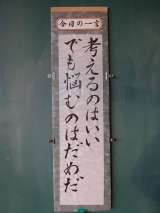 今日の一言
考えるのはいい
でも悩むのはだめだ